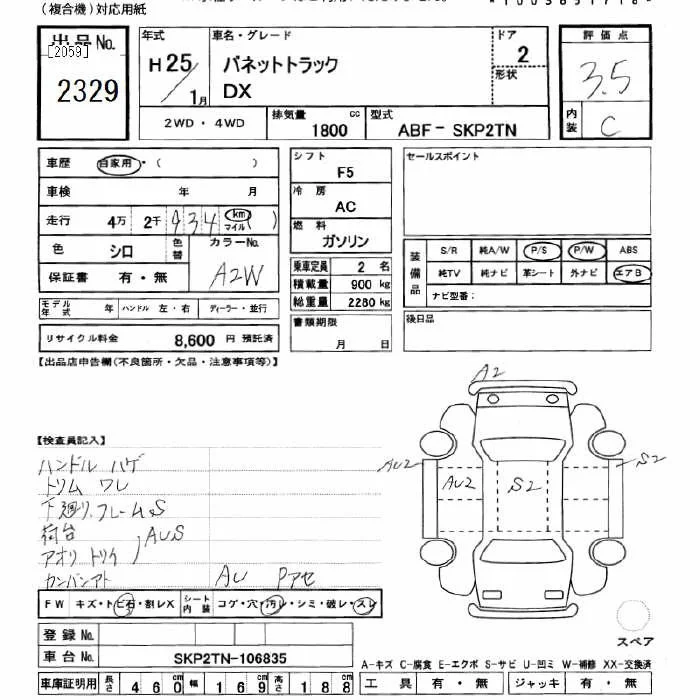 (複合機)対応用紙
出品No.
[2059]
2329
年式
H25/1月
車名・グレード
バネットトラック
DX
ドア
2
形状
評価点
3.5
内装
C
2WD・4WD
排気量 cc
1800
型式
ABF-SKP2TN
車歴 自家用・( )
車検 年 月
走行 4万 2千 434 km マイル ( )
色 シロ 色替 カラーNo. A2W
保証書 有・無
モデル年式 年 ハンドル 左・右 ディーラー・並行
リサイクル料金 8,600 円 預託済
シフト
F5
冷房
AC
燃料
ガソリン
乗車定員 2 名
積載量 900 kg
総重量 2280 kg
書類期限
月 日
セールスポイント
装備品
S/R 純A/W P/S P/W ABS
純TV 純ナビ 革シート 外ナビ エアB
ナビ型番:
後日品
【出品店申告欄(不良箇所・欠品・注意事項等)】
【検査員記入】
ハンドル ハゲ
トリム ワレ
下廻り、フレームS
荷台
アオリ トリイ AUS
カンバンアト AU Pアセ
A2
AU2 AU2 S2 S2
FW キズ・トビ石・割レX シート内装 コゲ・穴・汚レ・シミ・破レ・スレ
登録No.
車台No. SKP2TN-106835
車庫証明用 長さ 460 幅 169 高さ 188
スペア
A-キズ C-腐食 E-エクボ S-サビ U-凹ミ W-補修 XX-交換済
工具 有・無 ジャッキ 有・無